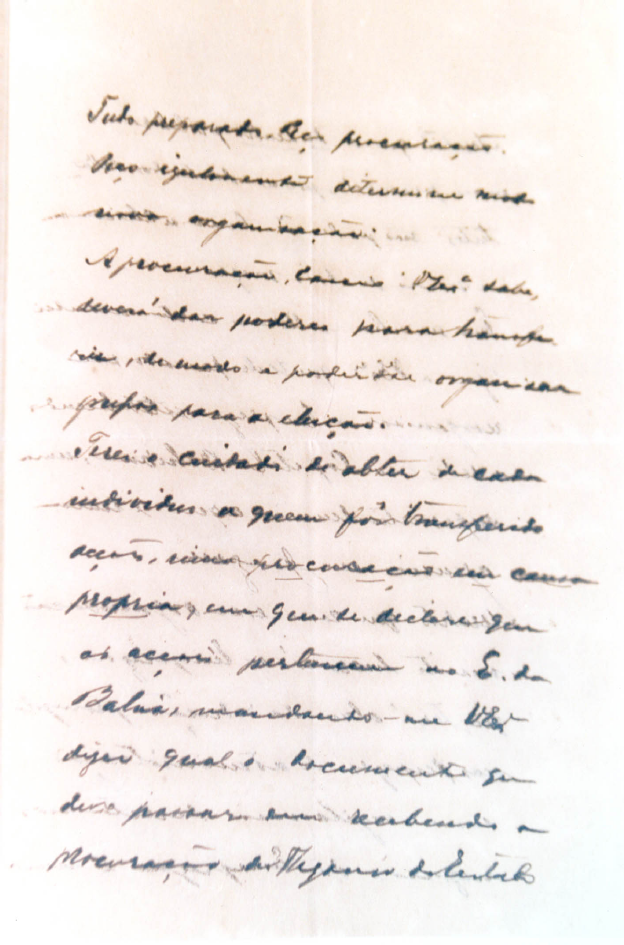 Tudo preparado. procuração.
Peço igualmente determine modo
nova organisação.
A procuração, como VExª sabe,
deverá dar poderes para transfe
rir, de modo a poder se organisar
grupos para a eleição.
Terei o cuidado de obter de cada
individuo a quem fôr transferido
acções, uma procuração em causa
propria, em que se declare que
as acções pertencem ao E. da
Bahia, mandando-me VExª
dizer qual o documento que
devo passar em recebendo a
procuração do Thesouro do Estado